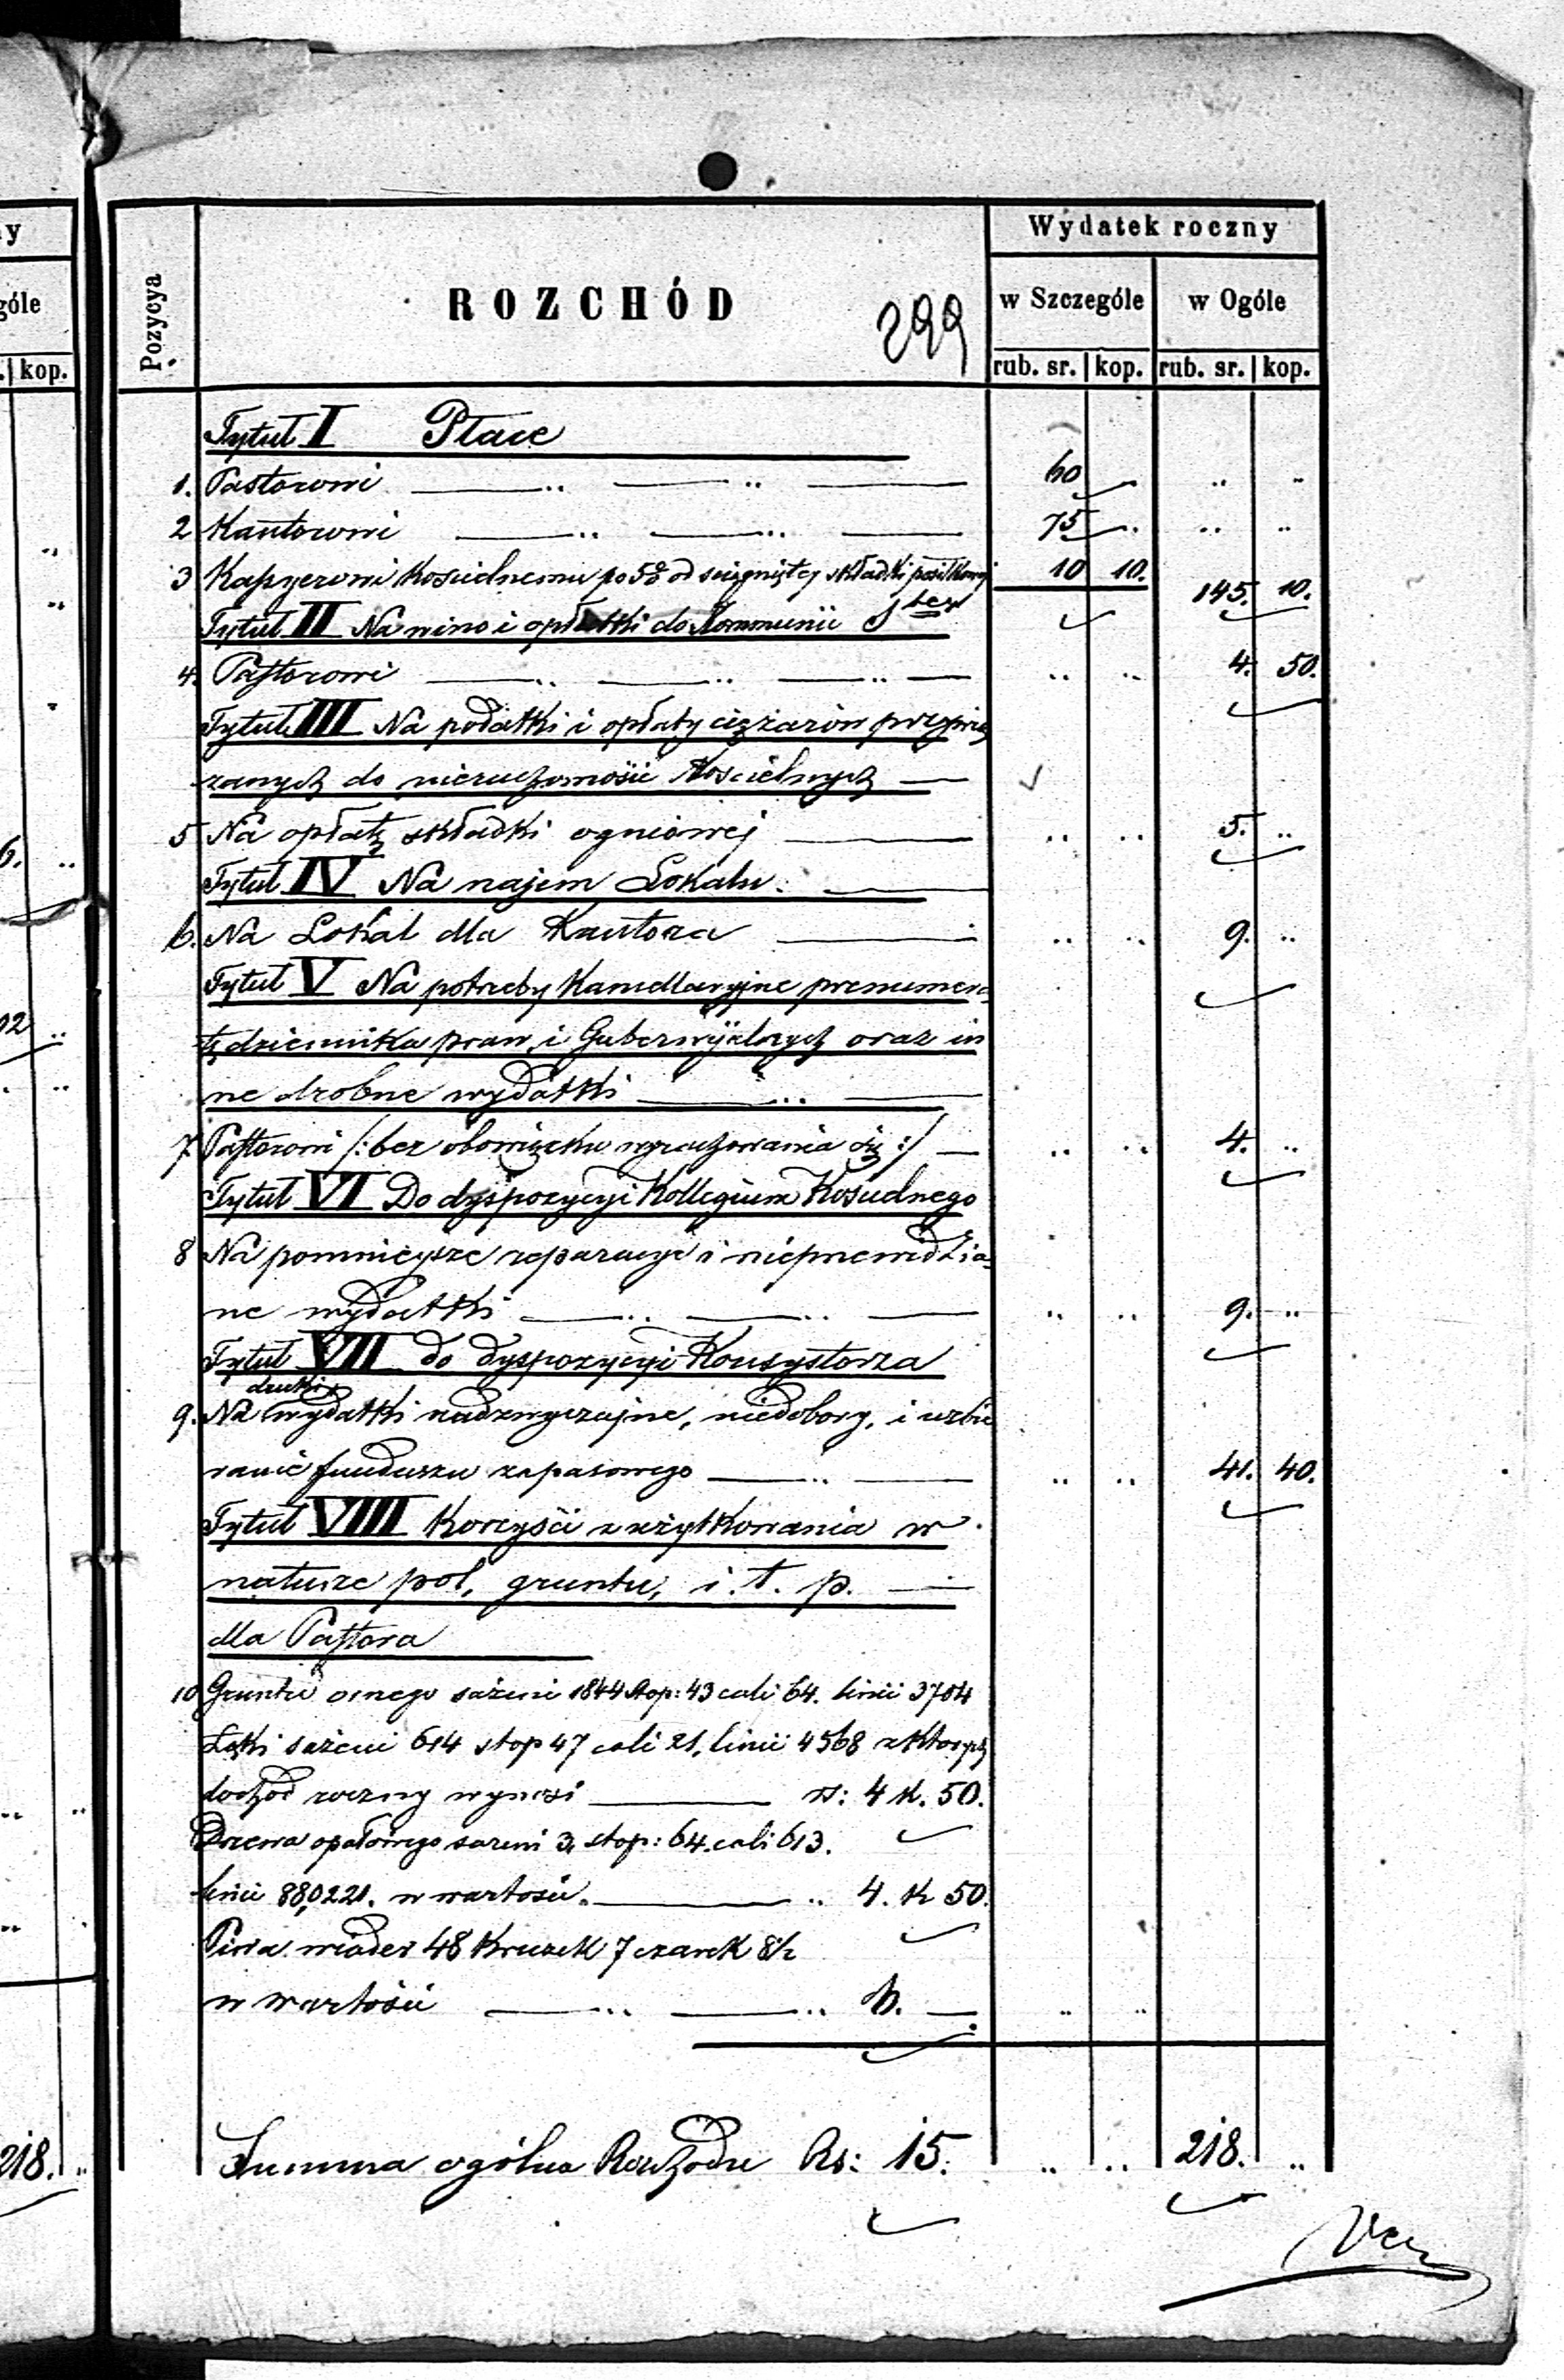 y
góle
kop.
6. ..
02 ..
218. ..
Pozycya
ROZCHÓD
299
Wydatek roczny
w Szczególe w Ogóle
rub. sr. kop. rub. sr. kop.
Tytuł I Płace
1. Pastorowi 60 — .. ..
2 Kantorowi 75 — .. ..
3 Kassyerowi Kościelnemu po 5% od ściągniętej składki posiłkowej 10 10. 145. 10.
Tytuł II Na wino i opłatki do Kommunii
4. Pastorowi .. .. 4. 50.
Tytuł III Na podatki i opłaty ciężarów przywią
zanych do nieruchomości Kościelnych
5 Na opłatę składki ogniowej .. .. 5. ..
Tytuł IV Na najem Lokalu.
6. Na Lokal dla Kantora .. .. 9. ..
Tytuł V Na potrzeby Kancellaryjne prenumera
tę dziennika praw, i Gubernijalnych oraz in
ne drobne wydatki
7. Pastorowi /: bez obowiązku wyrachowania się :/ .. .. 4. ..
Tytuł VI Do dyspozycyi Kollegium Kościelnego
8 Na pomniejsze reparacye i nieprzewidzia=
ne wydatki .. .. 9. ..
Tytuł VII do dyspozycyi Konsystorza
druki,
9. Na wydatki nadzwyczajne, niedobory, i uzbie
ranie funduszu zapasowego .. .. 41. 40.
Tytuł VIII Korzyści z użytkowania w
naturze pol, gruntu, i. t. p.
dla Pastora
10 Gruntu ornego sążeni 1844 stop: 43 cali 64. linii 3704
Łąki sążeni 614 stop 47 cali 21, linii 4568 z których
dochód roczny wynosi rs: 4 k. 50.
Drzewa opałowego sążeni 3, stop: 64. cali 613.
linii 880221. w wartości .. 4. k 50.
Piwa wiader 48 kruzek 7 czarek 8½
w wartości 6. — .. ..
Summa ogólna Rozchodu Rs: 15. .. .. 218. ..